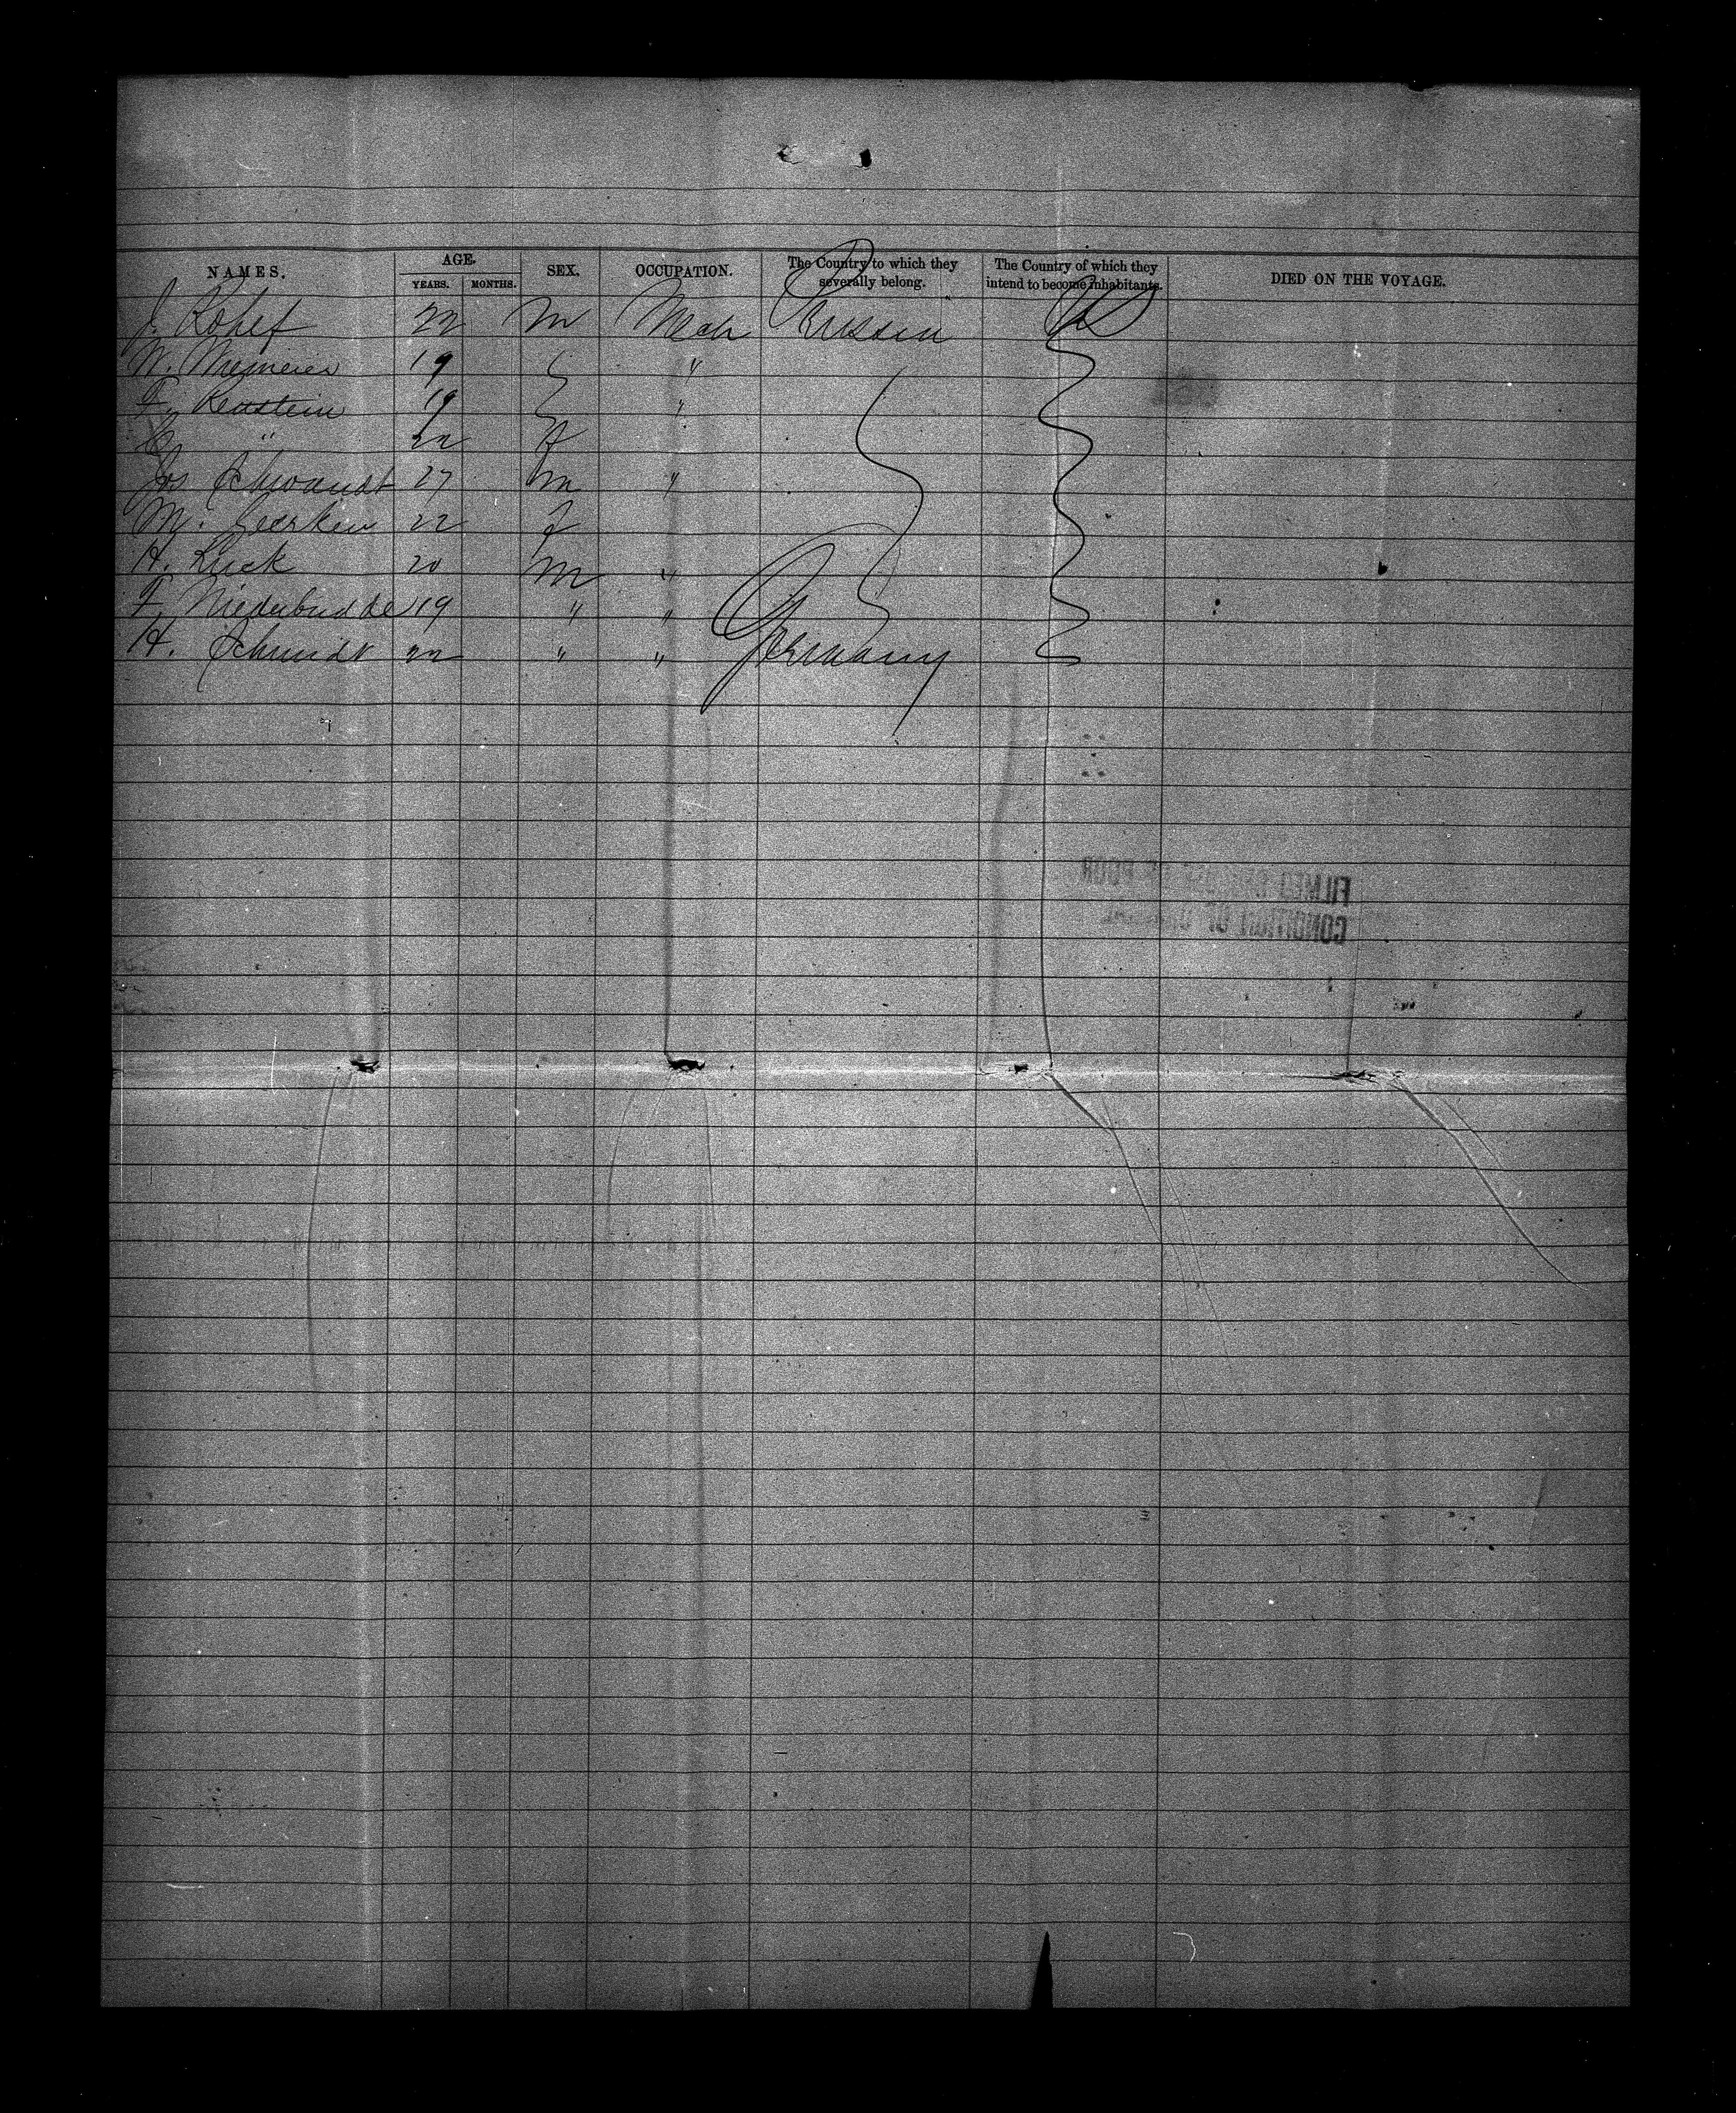 NAMES. AGE. SEX. OCCUPATION. The Country to which they severally belong. The Country of which they intend to become inhabitants. DIED ON THE VOYAGE.
YEARS. MONTHS.
J. 22 m Mech US
W. 19 "
F. 19 "
" 22 f "
Jos Schwandt 27 m "
M. 22 f
H. Rück 20 m "
F. Niederbudde 19 " "
H. Schmidt 22 " " Germany
FILMED BECAUSE OF POOR
CONDITION OF ORIGINAL